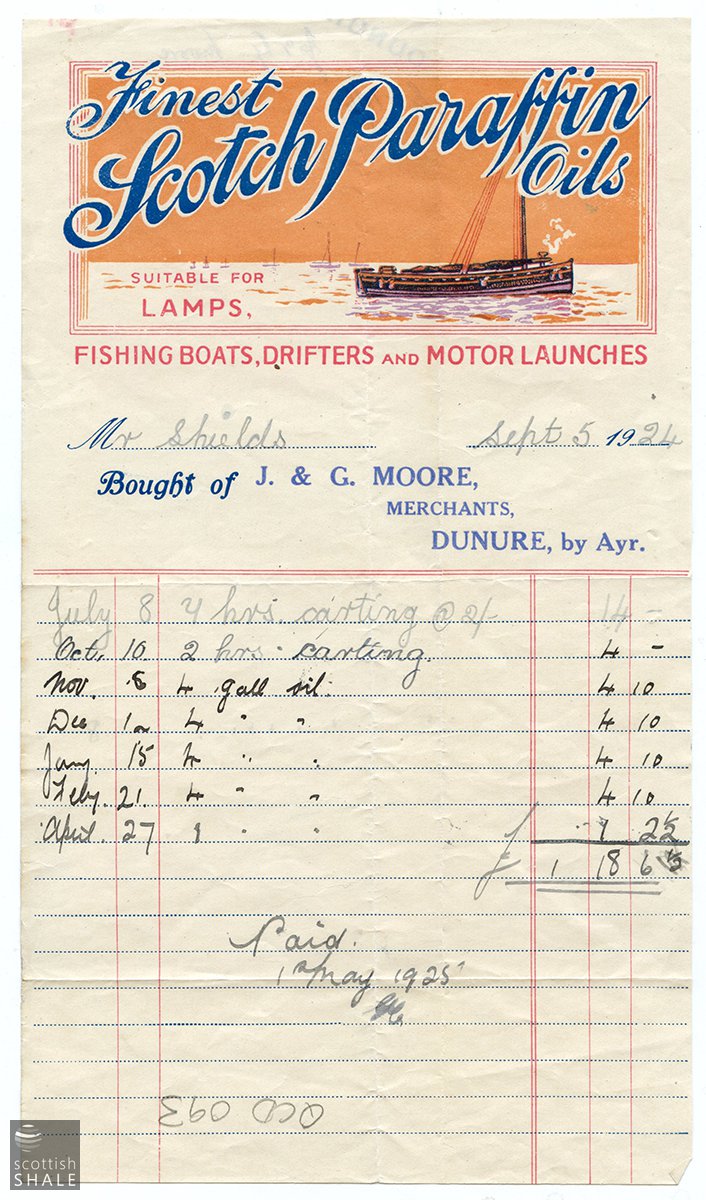 Finest
Scotch Paraffin
Oils
SUITABLE FOR
LAMPS,
FISHING BOATS, DRIFTERS AND MOTOR LAUNCHES
Mr Shields Sept 5 1924
Bought of J. & G. MOORE,
MERCHANTS,
DUNURE, by Ayr.
July 8 7 hrs. carting @ 2/- 14 -
Oct. 10 2 hrs. carting. 4 -
Nov. 8 4 gall oil. 4 10
Dec 12 4 " " 4 10
Jany. 15 4 " " 4 10
Feby. 21. 4 " " 4 10
April. 27 1 " " 1 2½
£ 1 18 6½
Paid.
1st May 1925
OCD 093
scottish
SHALE